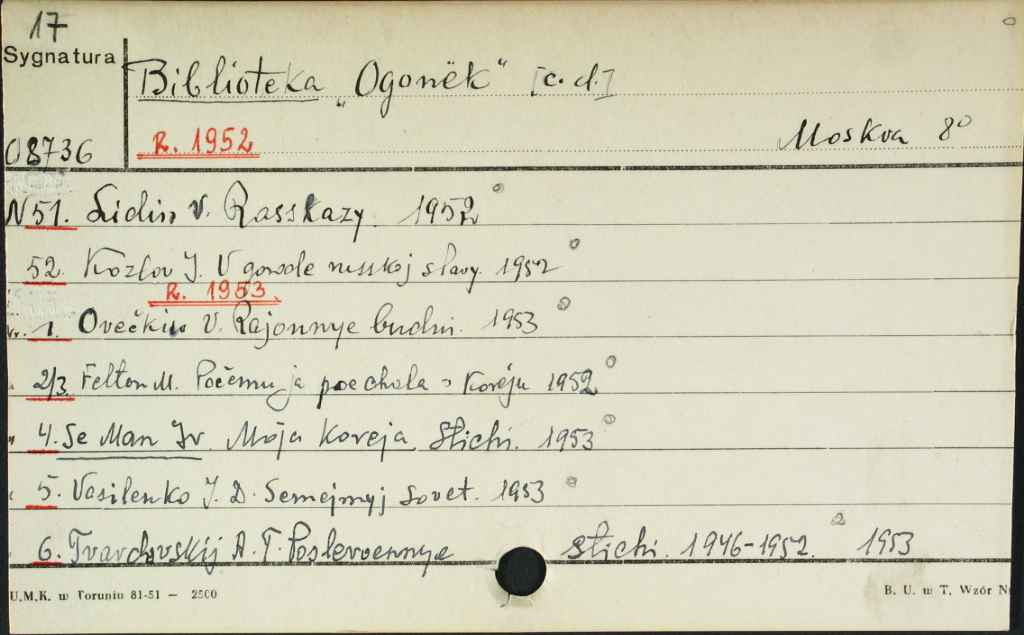 17
Sygnatura
Biblioteka „Ogonëk" [c.d.]
08736
R. 1952
Moskva 8°
N 51. Lidin V. Rasskazy. 1952
52. Kozlov J. V gorode russkoj slavy. 1952
R. 1953
Nr. 1. Ovečkin V. Rajonnye budni. 1953
" 2/3. Felton M. Počemu ja poechala v Koreju 1952
" 4. Se Man Ir Moja Koreja. Stichi. 1953
" 5. Vasilenko J. D. Semejnyj sovet. 1953
" 6. Tvardovskij A. T. Poslevoennye stichi. 1946-1952. 1953
U.M.K. w Toruniu 81-51 — 2500
B. U. w T. Wzór N